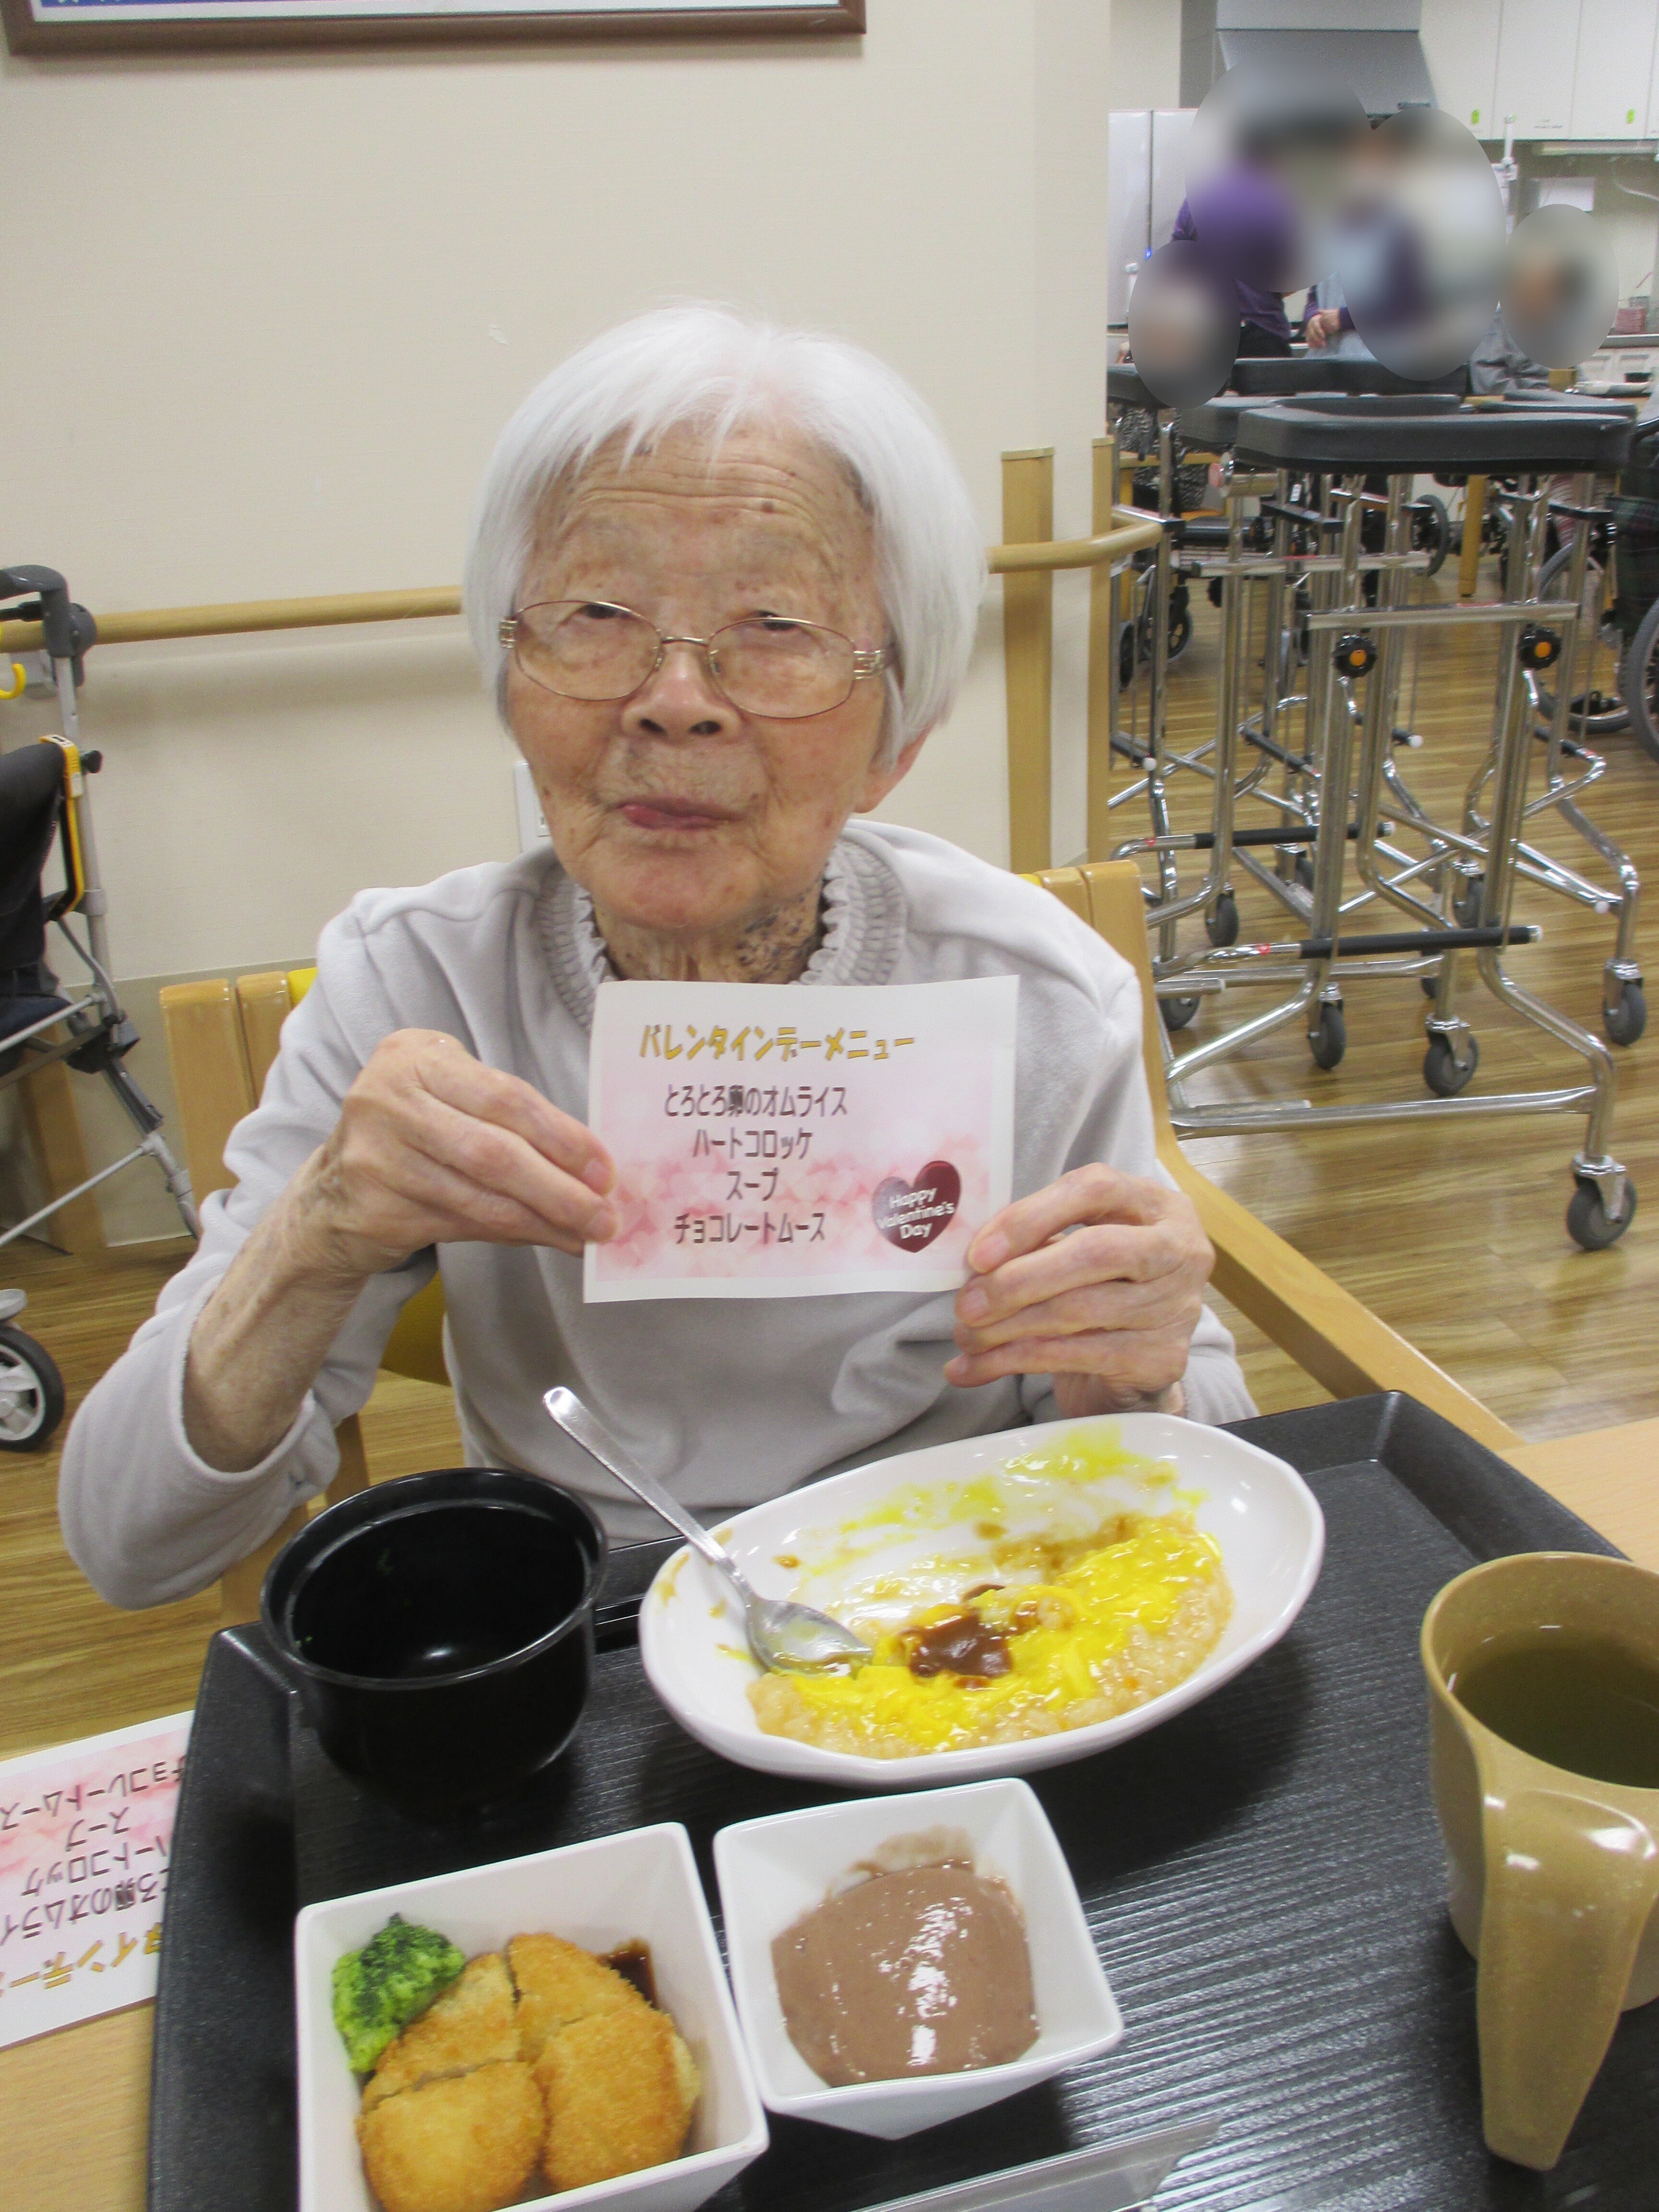 バレンタインデーメニュー
とろとろ卵のオムライス
ハートコロッケ
スープ
チョコレートムース
Happy
Valentine's
Day
チョコレートムース
スープ
ートコロッケ
ろ卵のオムライ
インデー